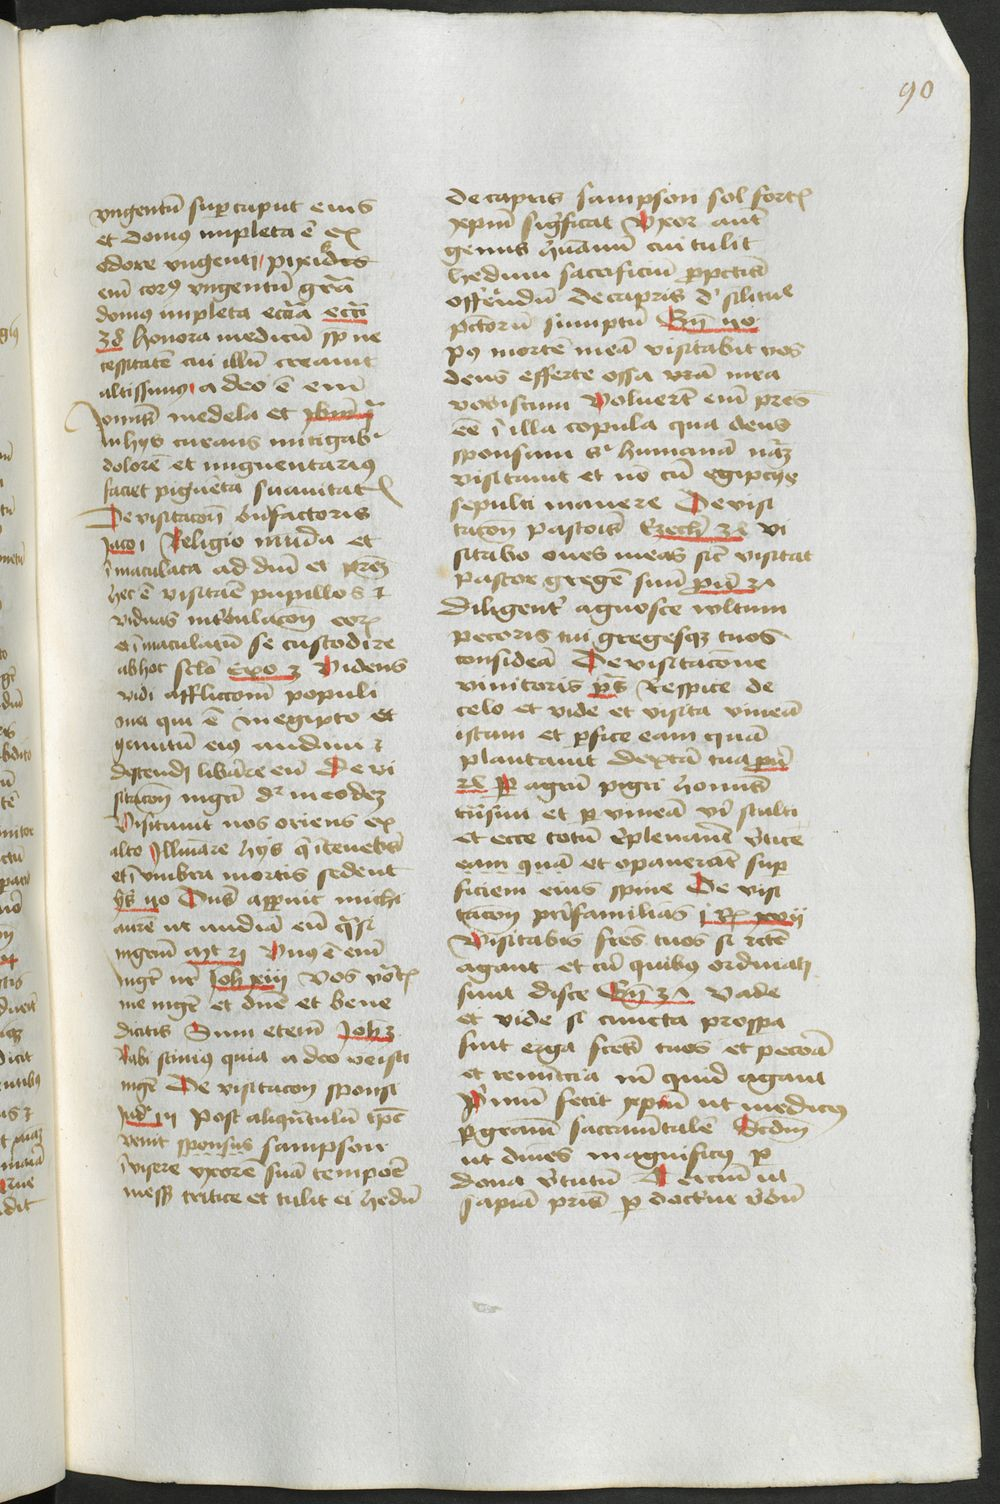 90
vngentū sup caput eius
et domus impleta ē ex
odore vngenti pixidis
eiū corꝰ vngentū grā
domus impleta ecciā eccī
38 honora medicū ꝓp ne
cessitatē cui illū creauit
altissimus a deo ē eiū
omīs medela et
In hys curans mitigabʳ
dolorē et vnguentariꝰ
faciet pigmēta suauitatꝭ
De visitacōn bnfactoris
Jaco i Religio mūda et
īmaculata ad dnū et prem̄
hec ē visitare pupillos ⁊
viduas in tribulacōn eorꝝ
et īmaculatū se custodire
ab hoc sclō Exo 3 Videns
vidi affliccōnem populi
mei qui ē in egipto et
gemitū eiꝰ audiui ⁊
descendi libare eū De vi
sitacōn
Visitauit nos oriens ex
alto Illuminare hys q̄ ī tenebrꝭ
et ī vmbra mortis sedent
ys 40 Dn̄s aperuit michi
aurē ut audiā eū q̄si
mgrm̄ Mt 23 Vnus ē eiū
mgr̄ vr̄ Joh xiii Vos vocatꝭ
me mgr̄ et dn̄e et bene
dicitis Sum etem̄ Joh 3
Rabi scimus quia a deo venisti
mgr̄ De visitacōn sponsi
Judꝭ 15 Post aliqntulū tp̄e
venit sponsus sampson
īvisere vxorē suā tempore
messꝭ tritice et tulit ei hedū
de capris sampson sol fortꝭ
xpm̄ sigficat Vxor aut̄
genus hūanū cui tulit
hedum sacrificiū
offerendū de capris ī silitue
pctorū sumptū Gn̄ 40
pꝰ mortē meā visitabit vos
deus efferte ossa mea
vobiscum Voluert̄ eiū pres
ēe ī illa copula qua deus
sponsum sʳ humanā natʳā
visitauit et nō cū egipciis
sepulti manere De visi
tacōn pastoris Ezech 34 vi
sitabo oues meas sic̄ visitat
pastor gregē suū
diligent̄ agnosce vultum
pecoris tui gregesqꝫ tuos
considera De visitacōne
vinitoris pˢ Respice de
celo et vide et visita vineā
istam et ꝑfice eam quā
plantauit dextā tua pū
24 Per agrū pigri hominis
trāsiui et per vineā viri stulti
et ecce totū repleuerāt vrtice
eam quā et operuerāt sup
ficiem eius spine De visi
tacōn patrisfamilias i Rꝭ xvii
Visitabis fres tuos si recte
agant et cū quibus ordinati
sunt disce Gn̄ 37 Vade
et vide si cuncta prospa
sint erga fres tuos et pecorā
et renuncia m̄ quid agant
Primū fecit xpm̄ ut medicꝰ
per gratiam sacramentalē Scdm̄
ut diues magnificꝰ per
dona virtutū Terciū ut
sapiā patris per doctrine verbū